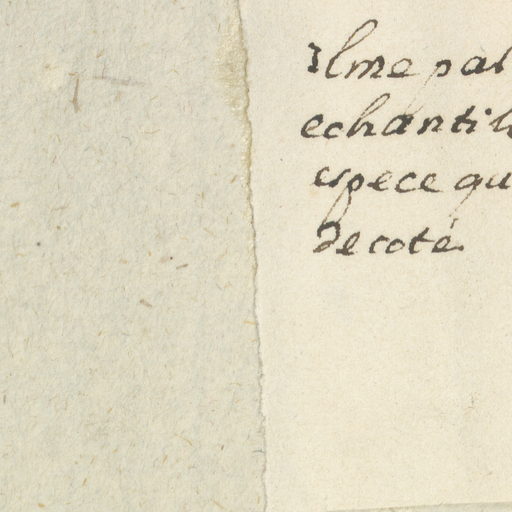 Il me pa
echanti
espece qu
de coté.